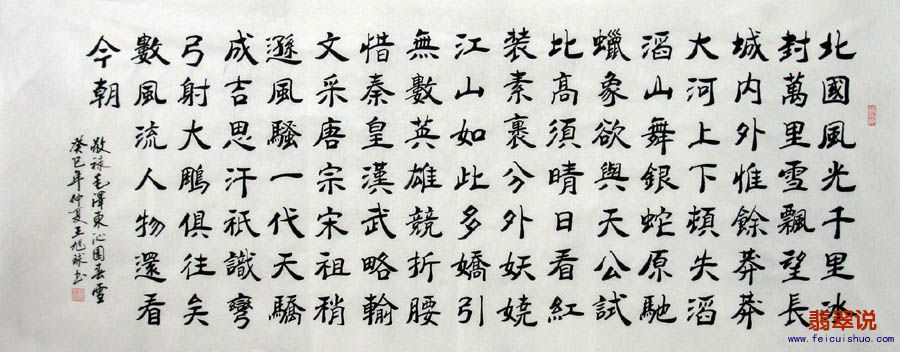 北國風光千里冰
封萬里雪飄望長
城內外惟餘莽莽
大河上下頓失滔
滔山舞銀蛇原馳
蠟象欲與天公試
比高須晴日看紅
裝素裹分外妖嬈
江山如此多嬌引
無數英雄競折腰
惜秦皇漢武略輸
文采唐宗宋祖稍
遜風騷一代天驕
成吉思汗祇識彎
弓射大鵰俱往矣
數風流人物還看
今朝
敬祿毛澤東沁園春雪
癸巳年仲夏王旭球書
翡翠说
www.feicuishuo.com